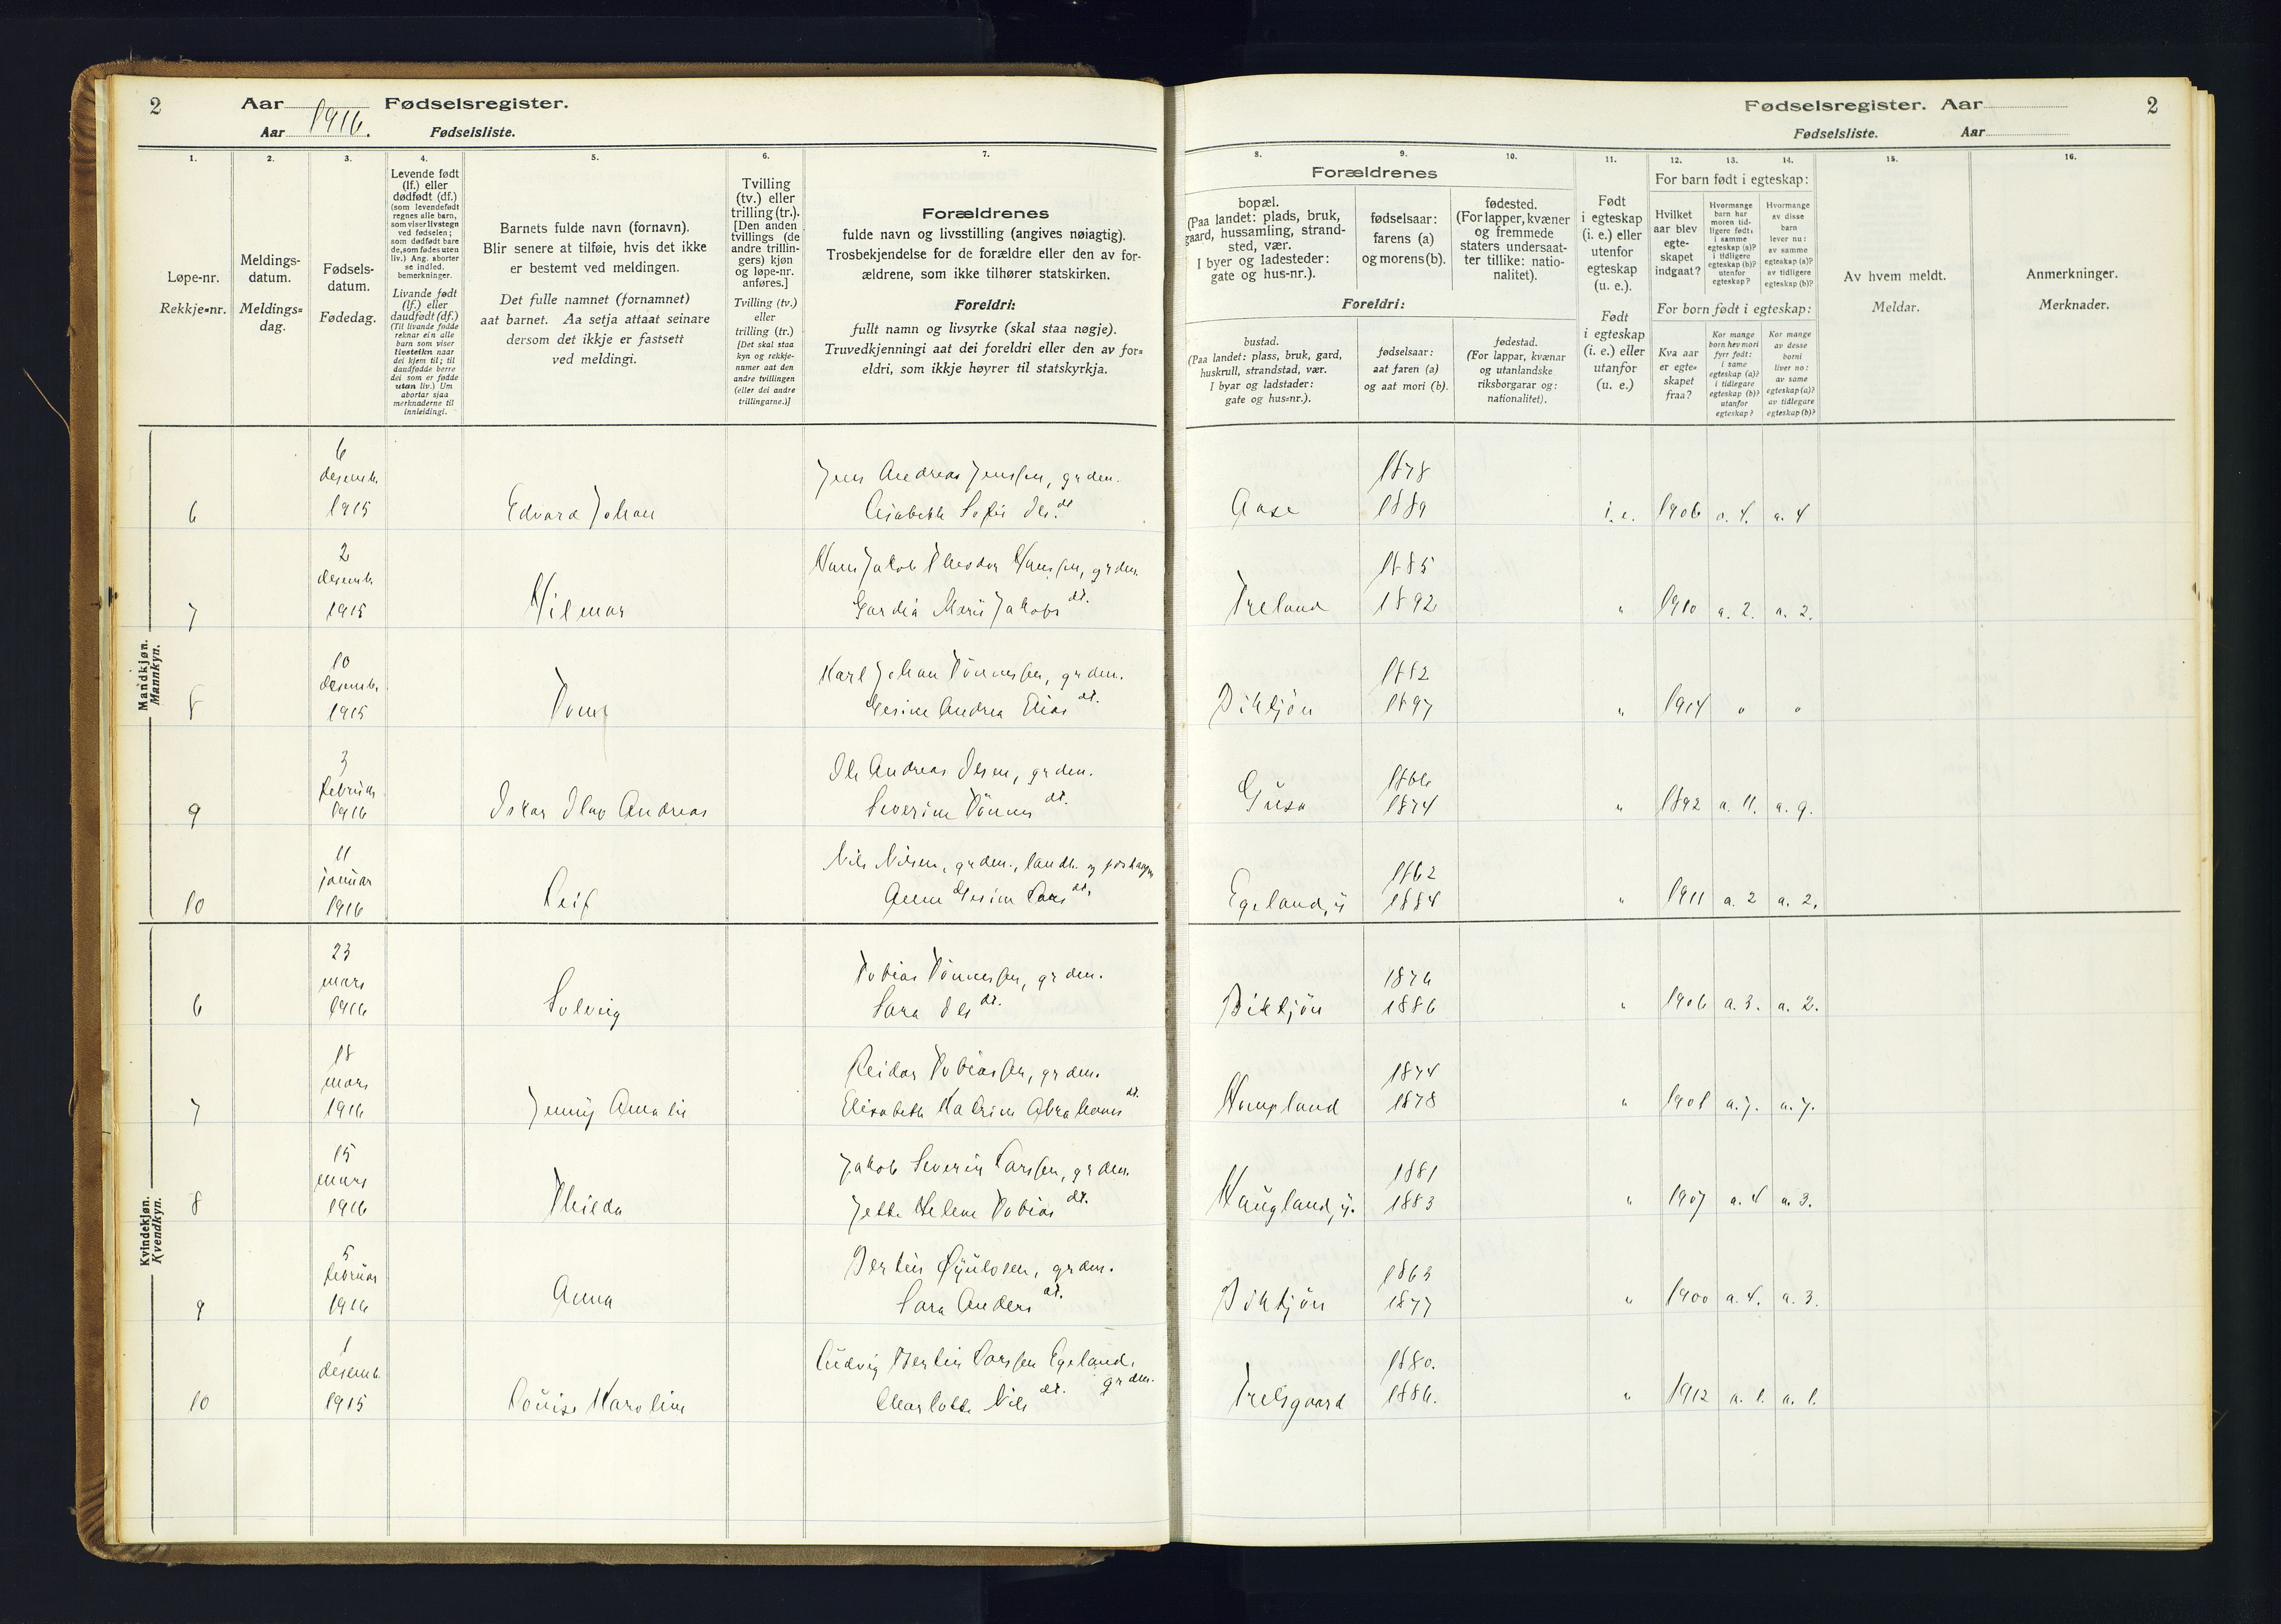 2
Aar 1916. Fødselsregister.
Aar Fødselsliste.
1.
2.
3.
4.
5.
6.
7.
Løpe-nr.
Rekkje=nr.
Meldings-
datum.
Meldings=
dag.
Fødsels-
datum.
Fødedag.
Levende født
(lf.) eller
dødfødt (df.)
(som levendefødt
regnes alle barn,
som viser livstegn
ved fødselen;
som dødfødt bare
de, som fødes uten
liv.) Ang. aborter
se indled.
bemerkninger.
Livande født
(lf.) eller
daudfødt (df.)
(Til livande fødde
reknar ein alle
barn som viser
livsteikn naar
dei kjem til; til
daudfødde berre
dei som er fødde
utan liv.) Um
abortar sjaa
merknaderne til
innleidingi.
Barnets fulde navn (fornavn).
Blir senere at tilføie, hvis det ikke
er bestemt ved meldingen.
Det fulle namnet (fornamnet)
aat barnet. Aa setja attaat seinare
dersom det ikkje er fastsett
ved meldingi.
Tvilling
(tv.) eller
trilling (tr.).
[Den anden
tvillings (de
andre trillin-
gers) kjøn
og løpe-nr.
anføres.]
Tvilling (tv.)
eller
trilling (tr.)
[Det skal staa
kyn og rekkje-
numer aat den
andre tvillingen
(eller dei andre
trillingarne.)]
Forældrenes
fulde navn og livsstilling (angives nøiagtig).
Trosbekjendelse for de forældre eller den av for-
ældrene, som ikke tilhører statskirken.
Foreldri:
fullt namn og livsyrke (skal staa nøgje).
Truvedkjenningi aat dei foreldri eller den av for=
eldri, som ikkje høyrer til statskyrkja.
Mandkjøn.
Mannkyn.
6
6
desemb.
1915
Edvard Johan
Jens Andreas Jenssen, grdm.
Elisabeth Sofie Ols dt.
7
2
desemb.
1915
Hilmar
Hans Jakob Theodor Hanssen, grdm.
Gardia Marie Jakobs dt.
8
10
desemb.
1915
Tom
Karl Johan Tönnessen, grdm.
Gesine Andrea Elias dt.
9
3
februar
1916
Oskar Olav Andreas
Ole Andreas Olsen, grdm.
Severine Tönnes dt.
10
11
januar
1916
Leif
Nils Nilsen, grdm., landh. og
Anne Gesine Lars dt.
Kvindekjøn.
Kvendkyn.
6
23
mars
1916
Solveig
Tobias Tönnessen, grdm.
Sara Ols dt.
7
18
mars
1916
Jenny Amalie
Reidar Tobiassen, grdm.
Elisabeth Katrine Abrahams dt.
8
15
mars
1916
Thilda
Jakob Severin Larssen, grdm.
Jette Helene Tobias dt.
9
5
februar
1916
Anna
Bertin Öyulvsen, grdm.
Sara Anders dt.
10
1
desemb.
1915
Louise Karoline
Ludvig Bertin Larssen Egeland,
grdm.
Charlotte Nils dt.
Fødselsregister. Aar 2
Fødselsliste. Aar
8.
9.
10.
11.
12.
13.
14.
15.
16.
Forældrenes
bopæl.
(Paa landet: plads, bruk,
gaard, hussamling, strand-
sted, vær.
I byer og ladesteder:
gate og hus-nr.).
fødselsaar:
farens (a)
og morens (b).
fødested.
(For lapper, kvæner
og fremmede
staters undersaat-
ter tillike: natio-
nalitet).
Foreldri:
bustad.
(Paa landet: plass, bruk, gard,
huskrull, strandstad, vær.
I byar og ladstader:
gate og hus=nr.).
fødselsaar:
aat faren (a)
og aat mori (b).
fødestad.
(For lappar, kvænar
og utanlandske
riksborgarar og:
nationalitet).
Født
i egteskap
(i. e.) eller
utenfor
egteskap
(u. e.).
Født
i egteskap
(i. e.) eller
utanfor
(u. e.)
For barn født i egteskap:
Hvilket
aar blev
egte-
skapet
indgaat?
Hvormange
barn har
moren tid-
ligere født:
i samme
egteskap (a)?
i tidligere
egteskap (b)?
utenfor
egteskap?
Hvormange
av disse
barn
lever nu:
av samme
egteskap (a)?
av tidligere
egteskap (b)?
For born født i egteskap:
Kva aar
er egte=
skapet
fraa?
Kor mange
born hev mori
fyrr født:
i same
egteskap (a)?
i tidlegare
egteskap (b)?
utanfor
egteskap?
Kor mange
av desse
borni
liver no:
av same
egteskap (a)?
av tidlegare
egteskap (b)?
Av hvem meldt.
Meldar.
Anmerkninger.
Merknader.
Aase
1878
1889
i. e.
1906
a. 4.
a. 4
Treland
1885
1892
"
1910
a. 2.
a. 2.
Birkjön
1882
1897
"
1914
"
"
Gusa
1866
1874
"
1892
a. 11.
a. 9.
Egeland, y
1862
1884
"
1911
a. 2
a. 2.
Birkjön
1876
1886
"
1906
a. 3.
a. 2.
1874
1878
"
1908
a. 7.
a. 7.
Haugland, y.
1881
1883
"
1907
a. 4
a. 3.
Birkjön
1863
1877
"
1900
a. 4.
a. 3.
Trelsgaard
1880.
1886.
"
1912
a. 1.
a. 1.